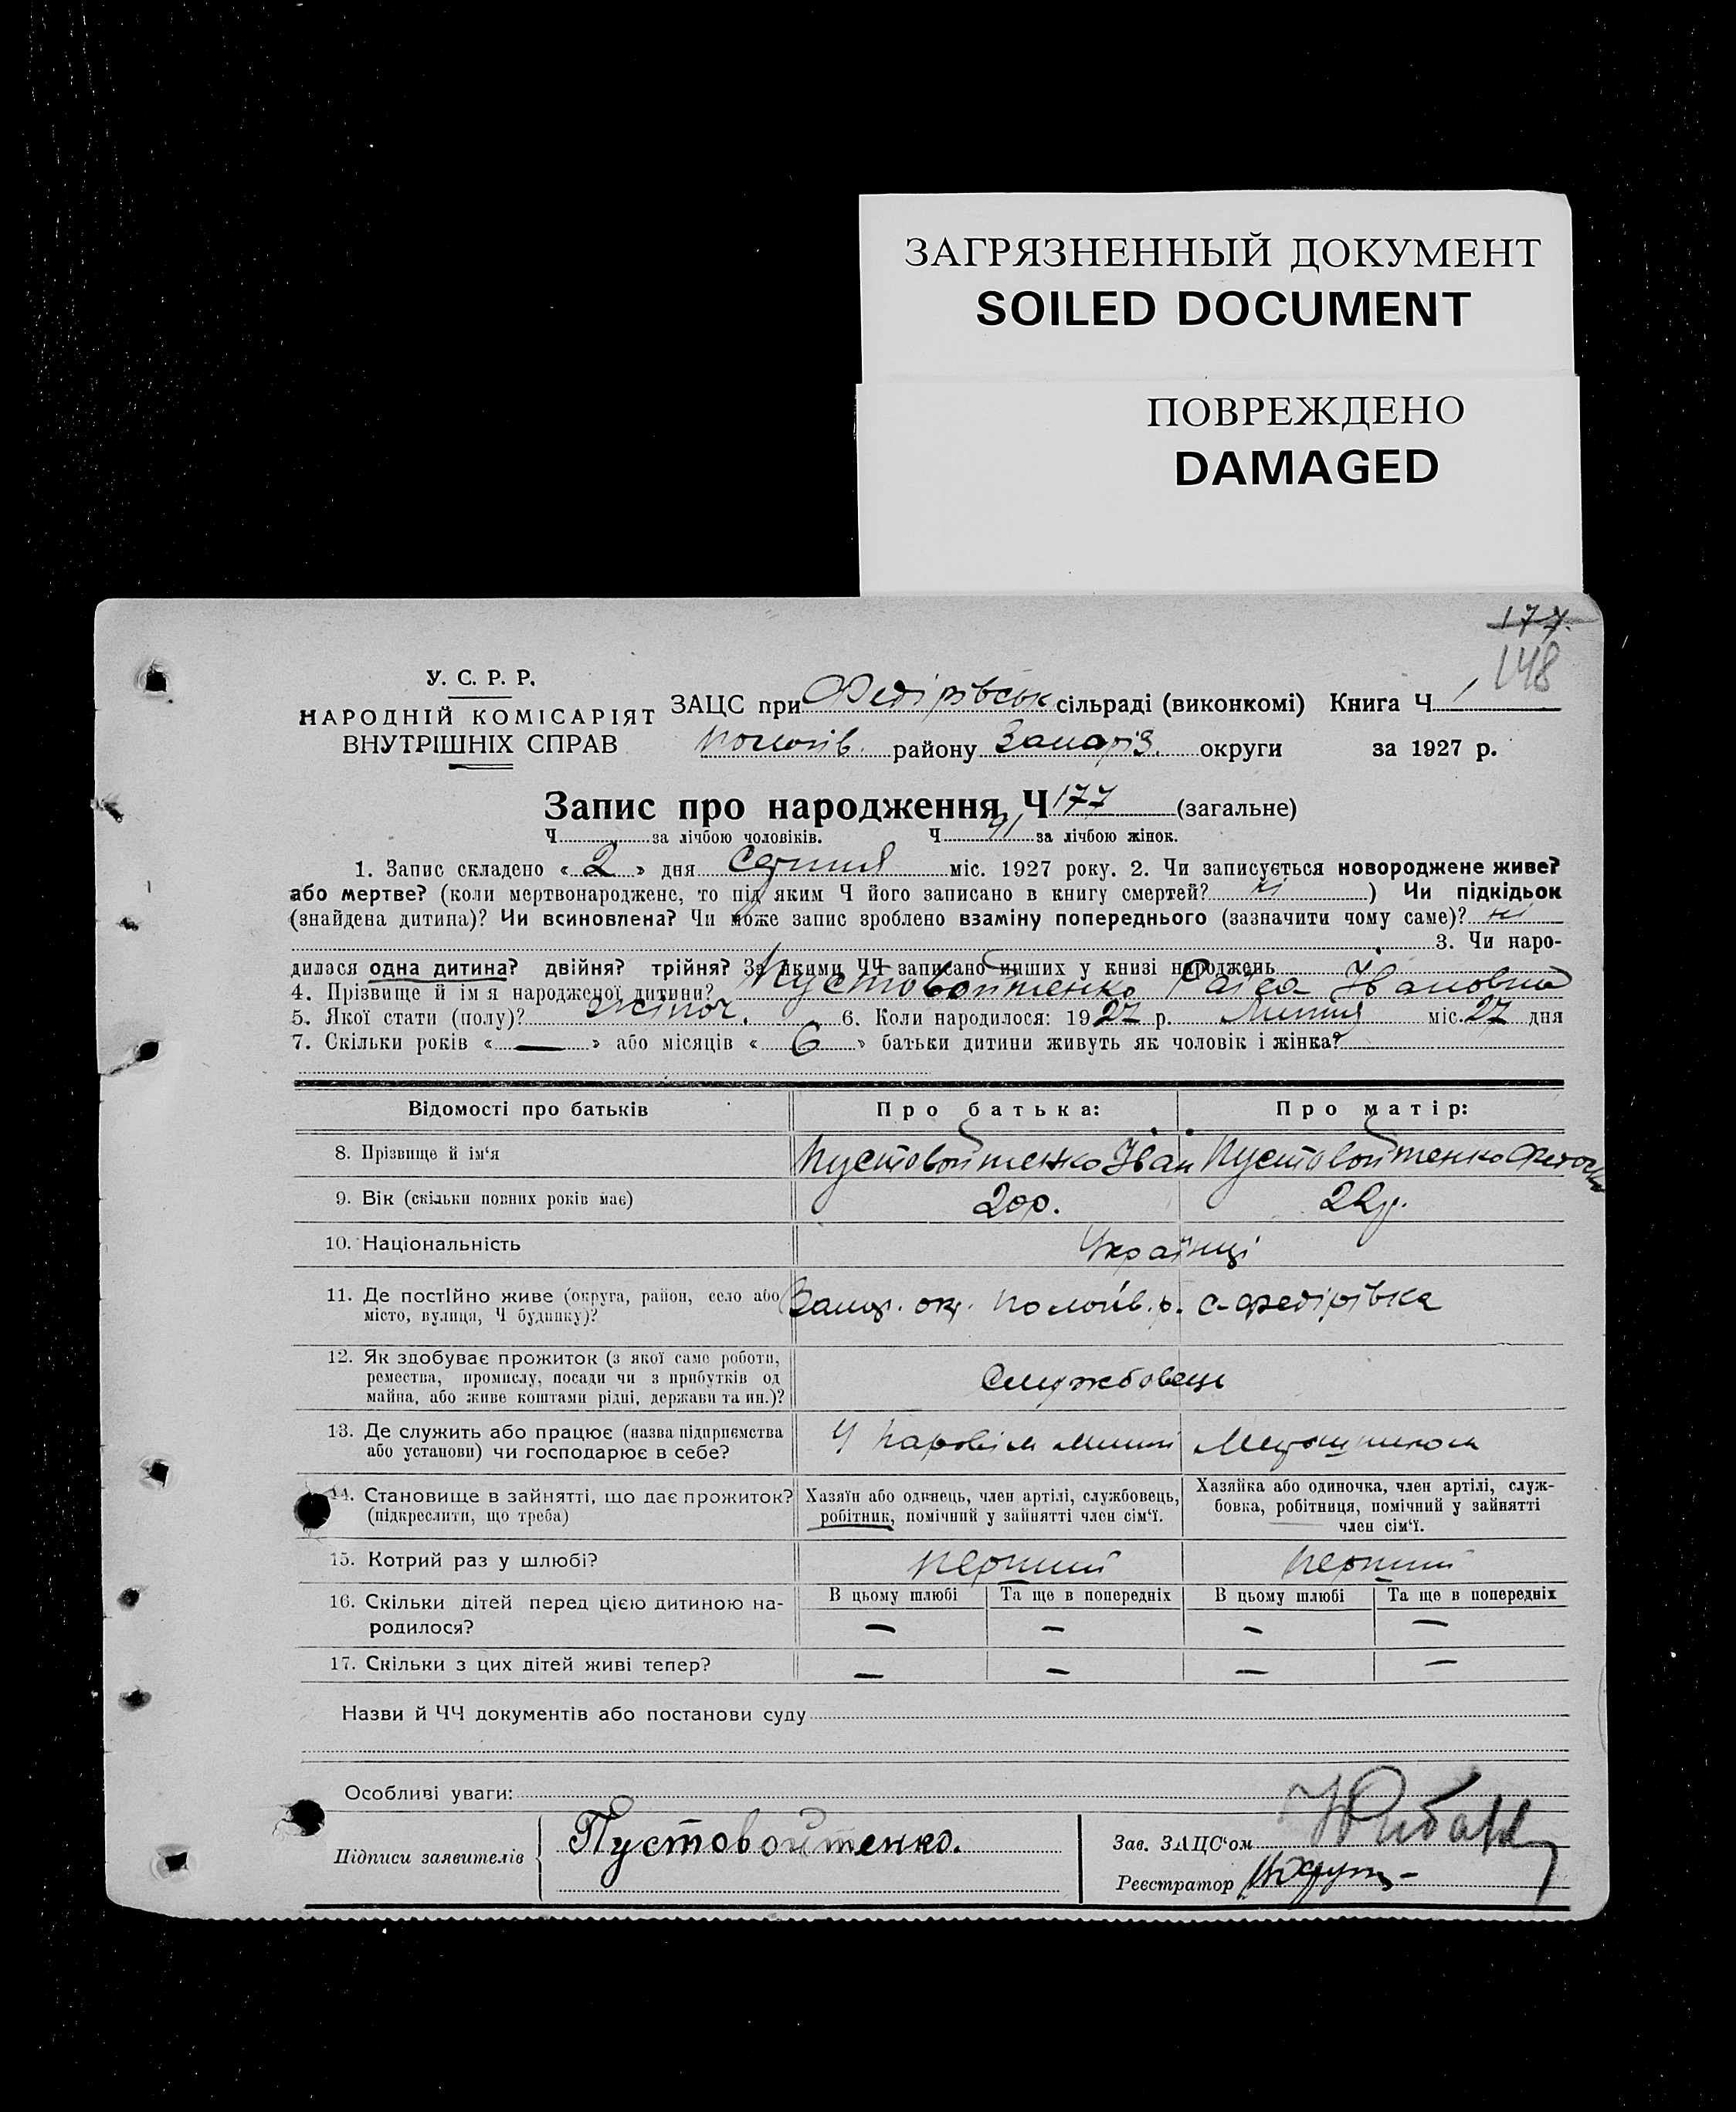 ЗАГРЯЗНЕННЫЙ ДОКУМЕНТ
SOILED DOCUMENT
ПОВРЕЖДЕНО
DAMAGED
177.
148
У. С. Р. Р.
НАРОДНІЙ КОМІСАРІЯТ
ВНУТРІШНІХ СПРАВ
ЗАЦС при Федірівськ сільраді (виконкомі) Книга Ч 1
Пологів. району Запоріз. округи за 1927 р.
Запис про народження Ч 177 (загальне)
Ч за лічбою чоловіків. Ч 91 за лічбою жінок.
1. Запис складено « 2 » дня Серпня міс. 1927 року. 2. Чи записується новороджене живе?
або мертве? (коли мертвонароджене, то під яким Ч його записано в книгу смертей? ні ) Чи підкідьок
(знайдена дитина)? Чи всиновлена? Чи може запис зроблено взаміну попереднього (зазначити чому саме)? ні
3. Чи наро-
дилася одна дитина? двійня? трійня? За якими ЧЧ записано инших у книзі народжень
4. Прізвище й ім я народженої дитини? Пустовойтенко Раїса Івановна
5. Якої стати (полу)? жіноч. 6. Коли народилося: 1927 р. Липня міс. 27 дня
7. Скільки років « — » або місяців « 6 » батьки дитини живуть як чоловік і жінка?
Відомості про батьків Про батька: Про матір:
8. Прізвище й ім'я Пустовойтенко Іван Пустовойтенко
9. Вік (скільки повних років має) 20р. 22р.
10. Національність Українці
11. Де постійно живе (округа, район, село або
місто, вулиця, Ч будинку)? Запор. окр. Пологів. р. с-Федірівка
12. Як здобуває прожиток (з якої саме роботи,
ремества, промислу, посади чи з прибутків од
майна, або живе коштами рідні, держави та ин.)? Службовець
13. Де служить або працює (назва підприємства
або установи) чи господарює в себе? У паровім млині
14. Становище в зайнятті, що дає прожиток?
(підкреслити, що треба)
Хазяїн або одинець, член артілі, службовець,
робітник, помічний у зайнятті член сім'ї.
Хазяйка або одиночка, член артілі, служ-
бовка, робітниця, помічний у зайнятті
член сім'ї.
15. Котрий раз у шлюбі? перший перший
16. Скільки дітей перед цією дитиною на-
родилося?
В цьому шлюбі Та ще в попередніх В цьому шлюбі Та ще в попередніх
— — — —
17. Скільки з цих дітей живі тепер? — — — —
Назви й ЧЧ документів або постанови суду
Особливі уваги:
Підписи заявителів Пустовойтенко.
Зав. ЗАЦС'ом
Реєстратор